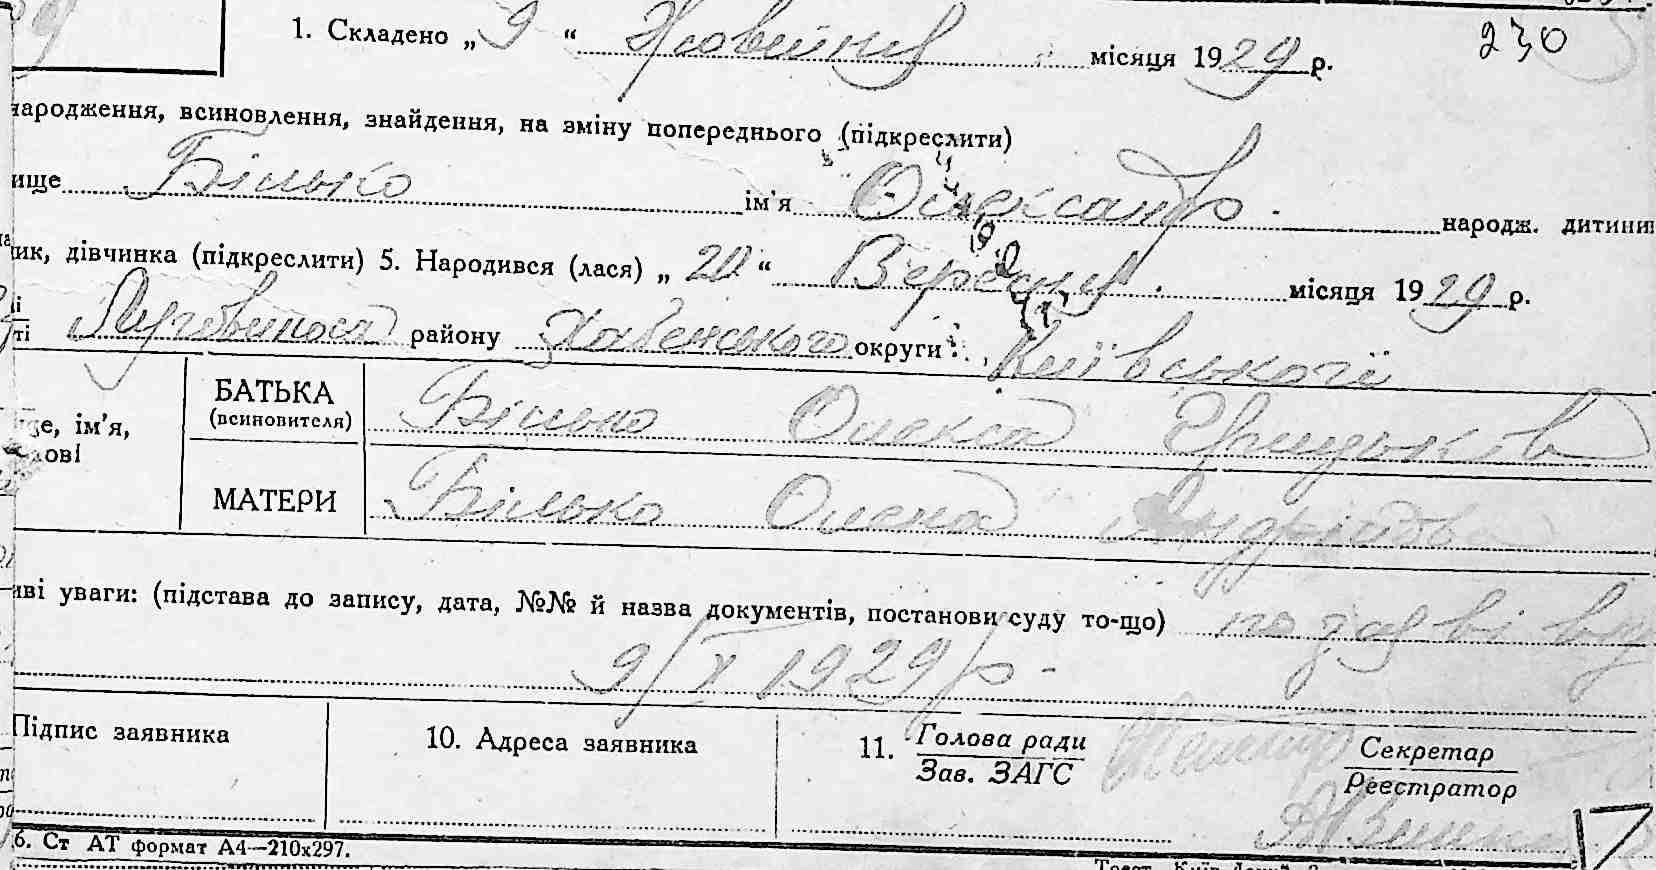 1. Складено „ 9 “ Жовтня місяця 1929 р. 230
народження, всиновлення, знайдення, на зміну попереднього (підкреслити)
ище Білько ім'я Олександр народж. дитини
ик, дівчинка (підкреслити) 5. Народився (лася) „ 20 “ Вересня місяця 1929 р.
ті району Хабенського округи Київської
БАТЬКА
(всиновителя) Білько Олекса Грицьков
ще, ім'я,
ові
МАТЕРИ Білько Олена Андріївна
иві уваги: (підстава до запису, дата, №№ й назва документів, постанови суду то-що) по заяві
9/X 1929 р.
Підпис заявника 10. Адреса заявника 11. Голова ради Секретар
Зав. ЗАГС Реєстратор
6. Ст АТ формат А4—210х297.